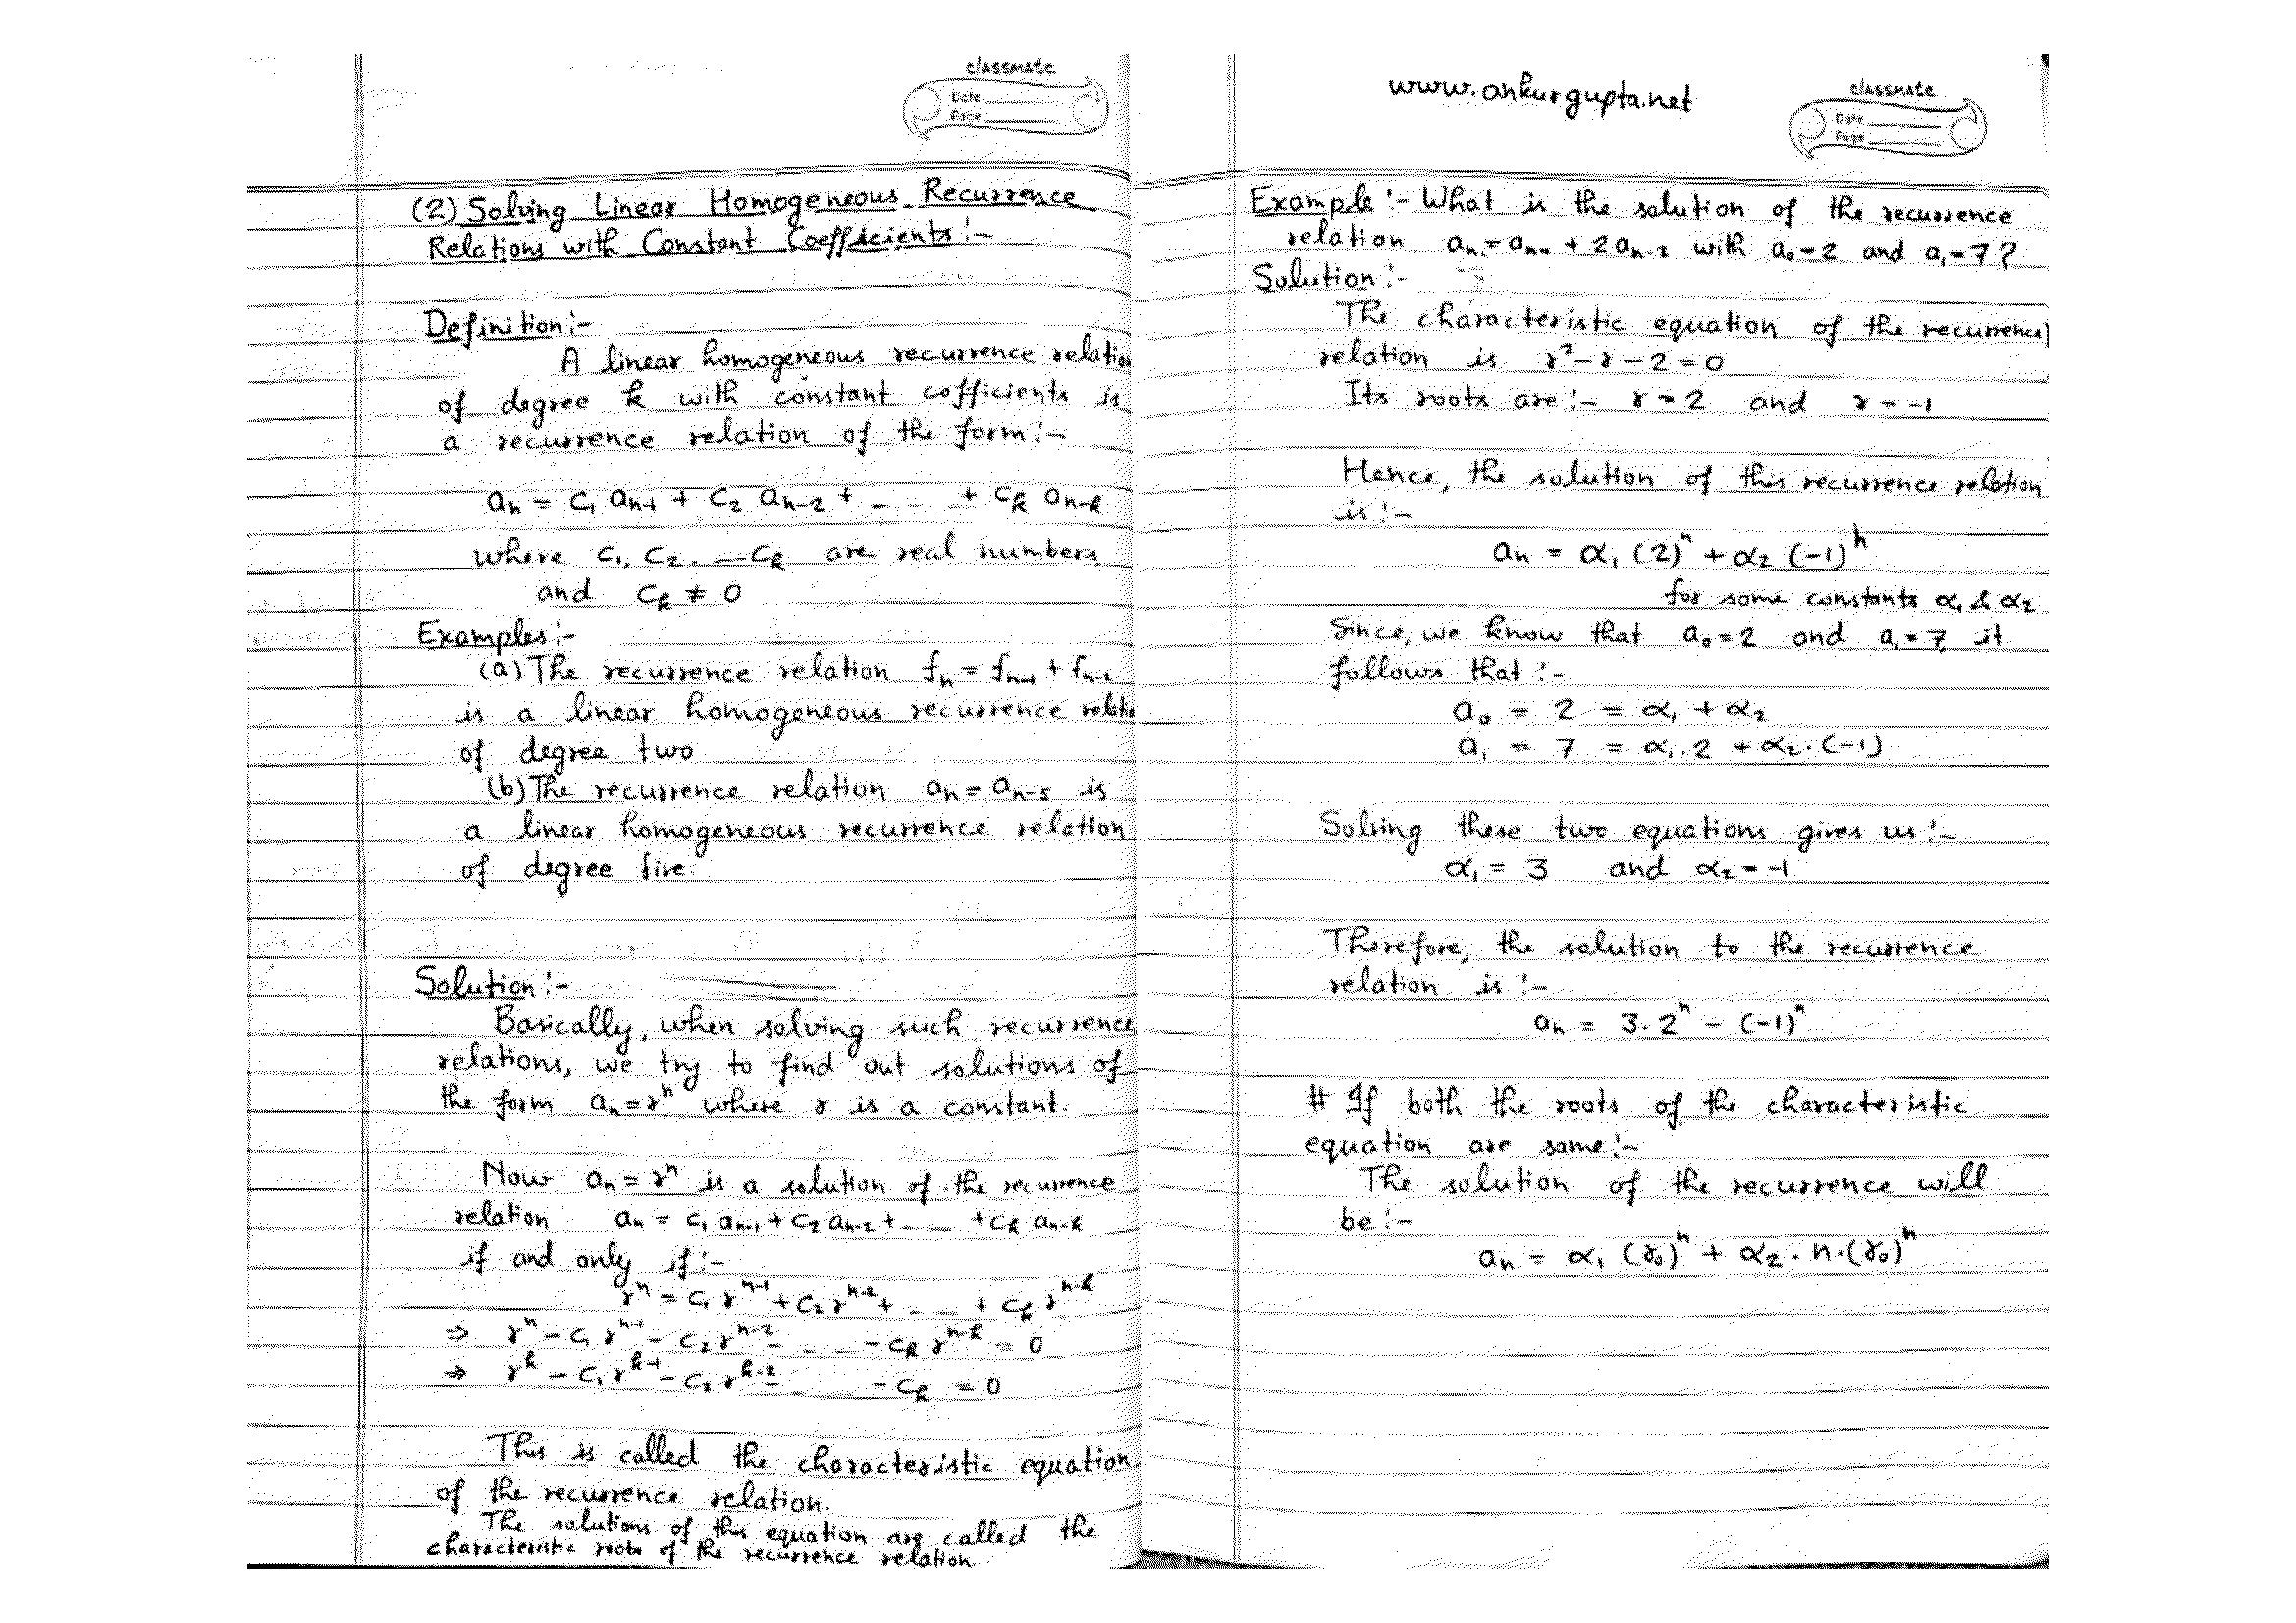 classmate
Date
Page
(2) Solving Linear Homogeneous Recurrence
Relations with Constant Coefficients :-
Definition :-
A linear homogeneous recurrence relation
of degree k with constant cofficients is
a recurrence relation of the form :-
aₙ = c₁ aₙ₋₁ + c₂ aₙ₋₂ + _ _ _ + cₖ aₙ₋ₖ
where c₁, c₂. __ cₖ are real numbers
and cₖ ≠ 0
Examples :-
(a) The recurrence relation fₙ = fₙ₋₁ + fₙ₋₂
is a linear homogeneous recurrence relatio
of degree two
(b) The recurrence relation aₙ = aₙ₋₅ is
a linear homogeneous recurrence relation
of degree five.
Solution :-
Basically, when solving such recurrence
relations, we try to find out solutions of
the form aₙ = rⁿ where r is a constant.
Now aₙ = rⁿ is a solution of the recurrence
relation aₙ = c₁ aₙ₋₁ + c₂ aₙ₋₂ + _ _ + cₖ aₙ₋ₖ
if and only if :-
rⁿ = c₁ rⁿ⁻¹ + c₂ rⁿ⁻² + _ _ + cₖ rⁿ⁻ᵏ
⇒ rⁿ - c₁ rⁿ⁻¹ - c₂ rⁿ⁻² - _ _ - cₖ rⁿ⁻ᵏ = 0
⇒ rᵏ - c₁ rᵏ⁻¹ - c₂ rᵏ⁻² - _ _ - cₖ = 0
This is called the characteristic equation
of the recurrence relation.
The solutions of this equation are called the
characteristic roots of the recurrence relation
www.ankurgupta.net
classmate
Date
Page
Example :- What is the solution of the recurrence
relation aₙ = aₙ₋₁ + 2aₙ₋₂ with a₀=2 and a₁=7?
Solution :-
The characteristic equation of the recurrence
relation is r² - r - 2 = 0
Its roots are :- r = 2 and r = -1
Hence, the solution of this recurrence relation
is :-
aₙ = α₁ (2)ⁿ + α₂ (-1)ⁿ
for some constants α₁ & α₂
Since, we know that a₀=2 and a₁=7, it
follows that :-
a₀ = 2 = α₁ + α₂
a₁ = 7 = α₁.2 + α₂.(-1)
Solving these two equations gives us :-
α₁ = 3 and α₂ = -1
Therefore, the solution to the recurrence
relation is :-
aₙ = 3.2ⁿ - (-1)ⁿ
# If both the roots of the characteristic
equation are same :-
The solution of the recurrence will
be :-
aₙ = α₁ (r₀)ⁿ + α₂ . n.(r₀)ⁿ